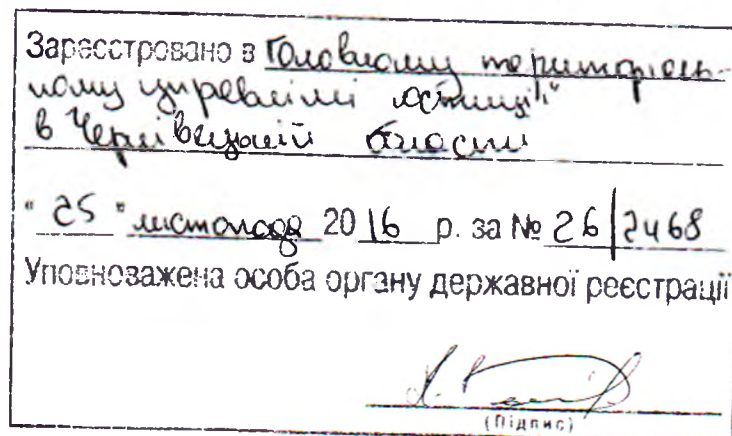 Зареєстровано в Головному територіаль-
ному управлінні юстиції
в Чернівецькій області
"25" листопада 2016 р. за № 26/2468
Уповноважена особа органу державної реєстрації
(Підпис)